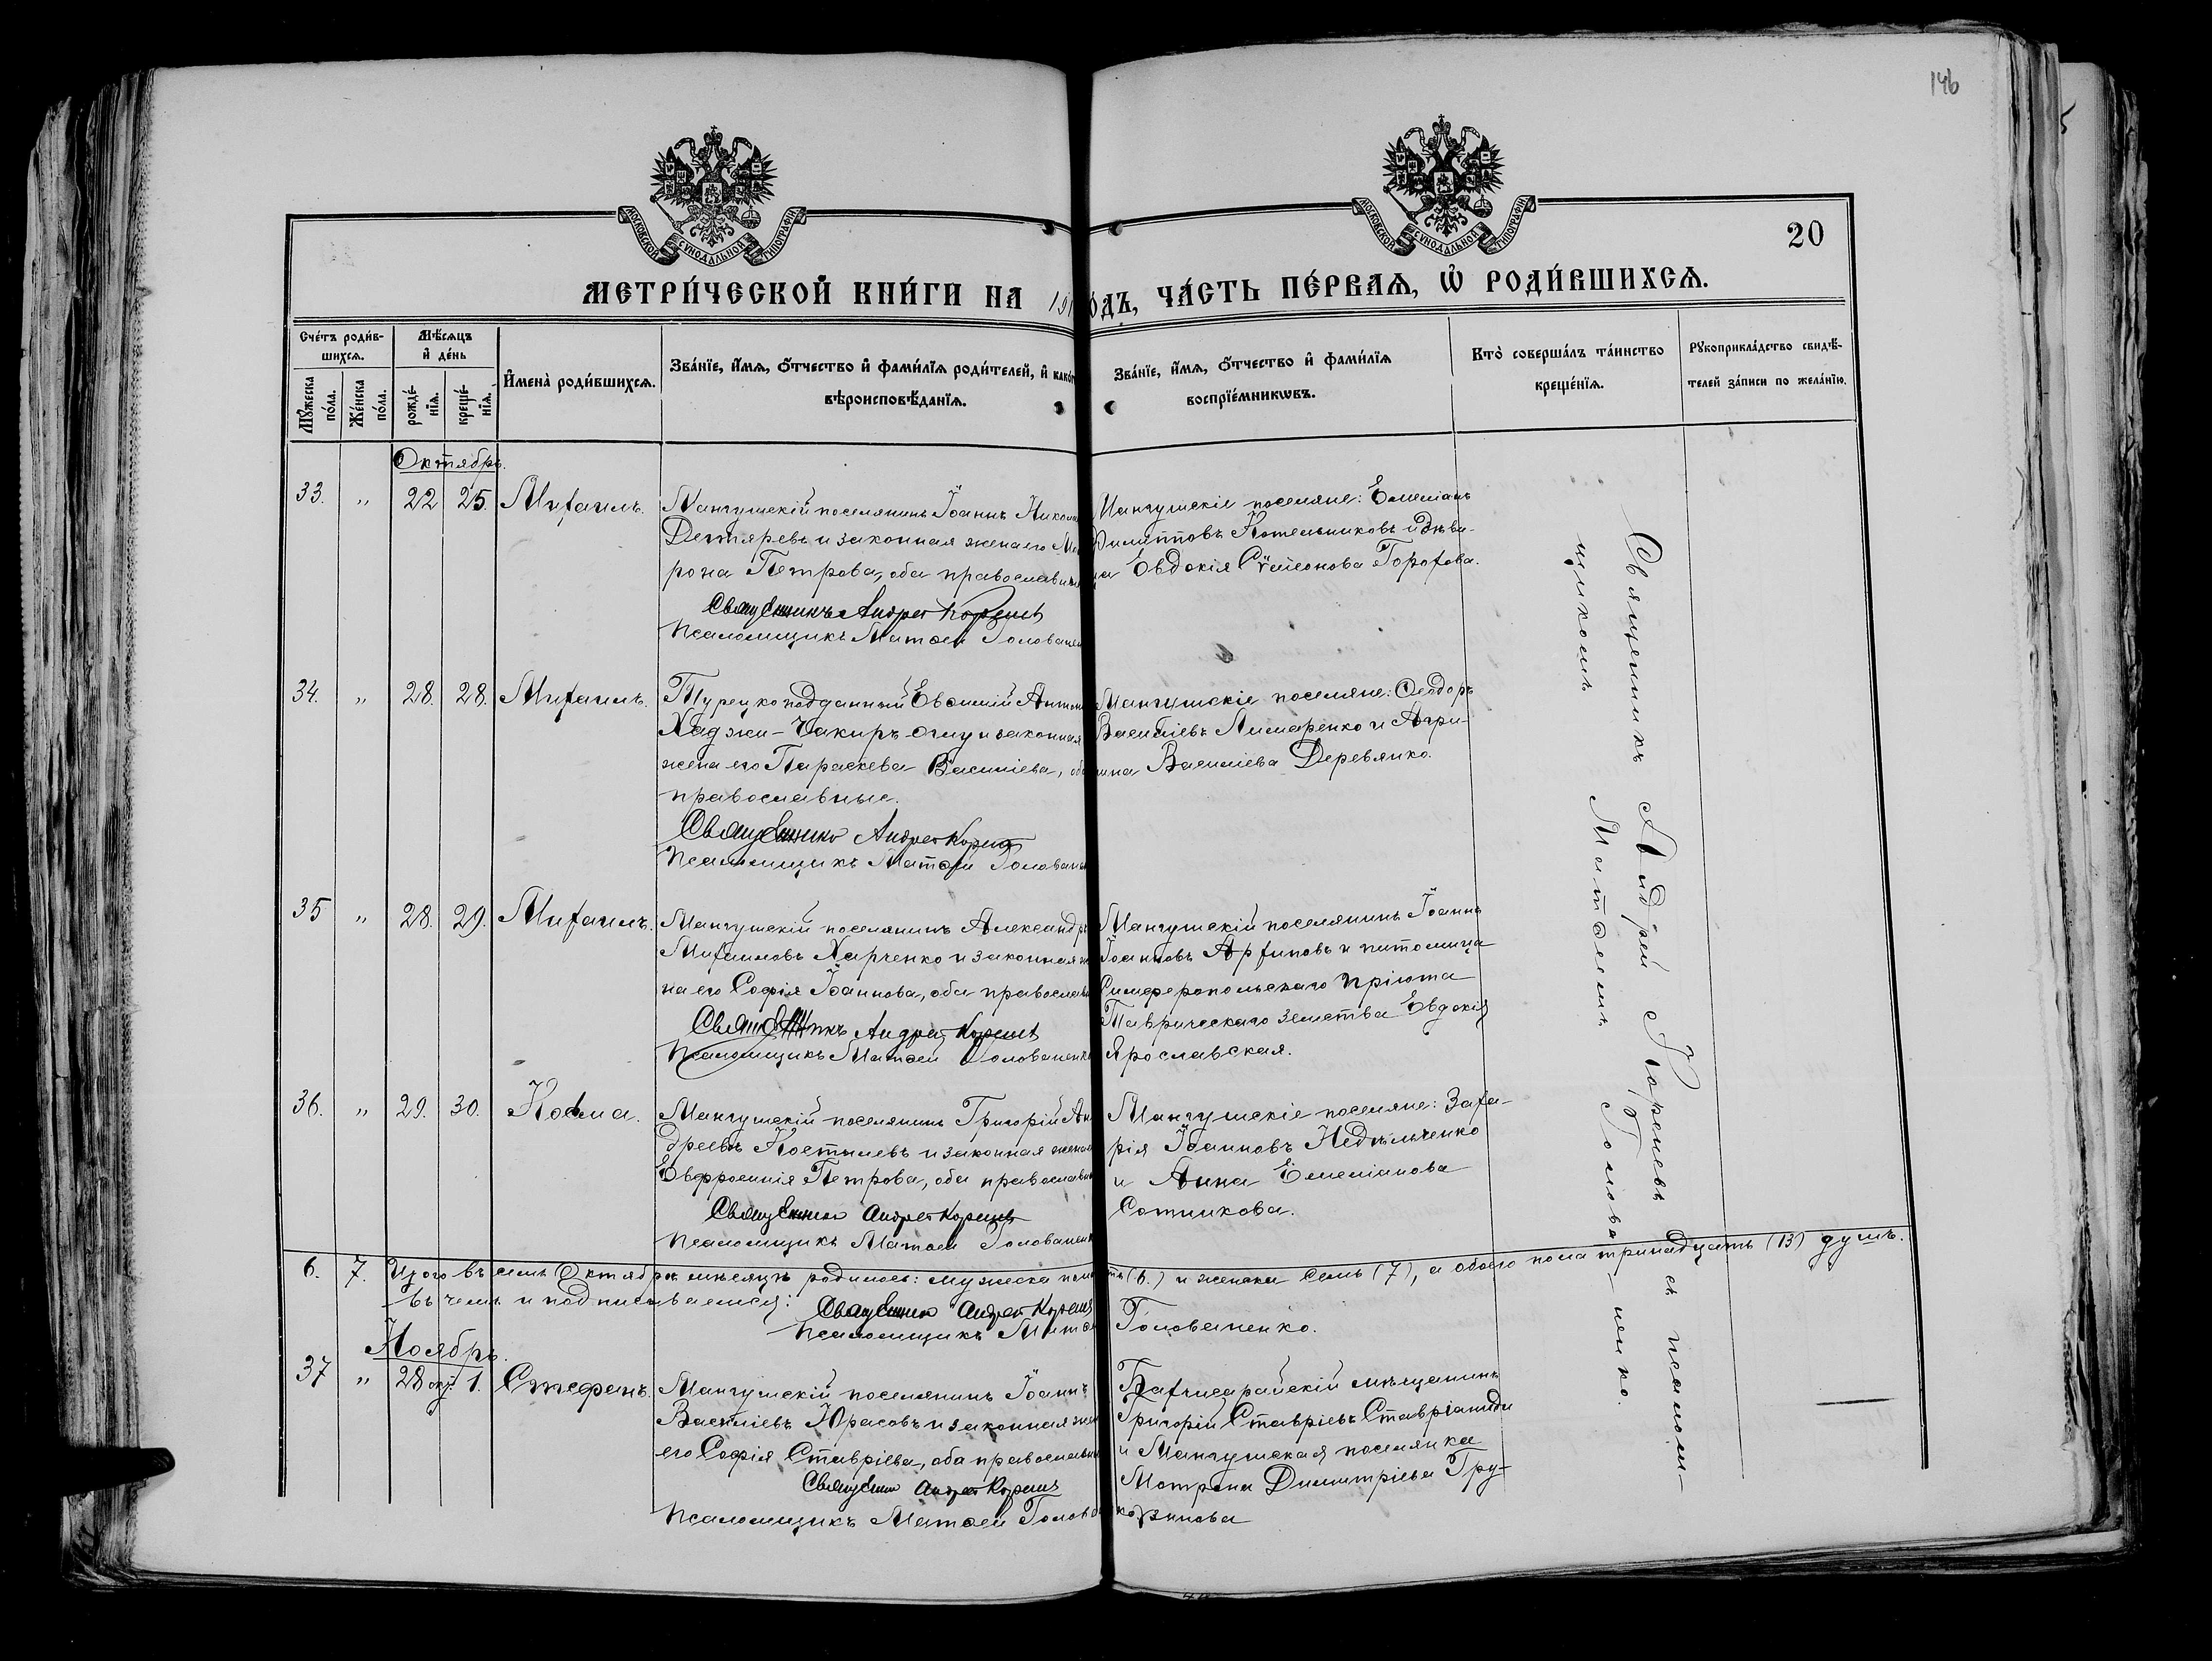 146
МОСКОВСКОЙ СУНОДАЛЬНОЙ ТИПОГРАФІИ
МОСКОВСКОЙ СУНОДАЛЬНОЙ ТИПОГРАФІИ
20
МЕТРИ́ЧЕСКОЙ КНИ́ГИ НА 191
О́ДЪ, ЧА́СТЬ ПЕ́РВАѦ, Ѡ҆ РОДИ́ВШИХСѦ.
Сче́тъ роди́в-
шихсѧ.
Мꙋ́жеска по́ла.
Же́нска по́ла.
Мѣ́сѧцъ
и҆ де́нь
рожде́-
нїѧ.
креще́-
нїѧ.
И҆мена̀ роди́вшихсѧ.
Зва́нїе, и҆́мѧ, ѻ҆́тчество и҆ фами́лїѧ роди́телей, и҆ како́г
вѣроисповѣ́данїѧ.
Зва́нїе, и҆́мѧ, ѻ҆́тчество и҆ фами́лїѧ
воспрїе́мникѡвъ.
Кто̀ соверша́лъ та́инство
креще́нїѧ.
Рꙋкоприкла́дство свидѣ́-
телей за́писи по жела́нїю.
Октябрь.
33. " 22 25. Михаилъ.
Мангушскій поселянинъ Іоаннъ Никола
Дегтяревъ и законная жена его Мат
рона Петрова, оба православны
Священникъ Андрей Кореневъ
Псаломщикъ Матѳей Голованен
Мангушскіе поселяне: Емеліанъ
Филипповъ Котельниковъ и дѣви-
ца Евдокія Сѵмеонова Горохова.
34. " 28. 28. Михаилъ.
Турецкоподданный Евѳимій Антон
Хаджи-Чакиръ-Оглу и законная
жена его Параскева Василіева, оба
православные.
Священникъ Андрей Кореневъ
Псаломщикъ Матѳей Голованен
Мангушскіе поселяне: Ѳеодоръ
Василіевъ Лимаренко и Агри-
пина Василіева Деревянко.
35 " 28. 29. Михаилъ.
Мангушскій поселянинъ Александръ
Михаиловъ Харченко и законная же
на его Софія Іоаннова, оба православн
Священникъ Андрей Кореневъ
Псаломщикъ Матѳей Голованенко
Мангушскій поселянинъ Іоаннъ
Іоанновъ Архиповъ и питомица
Симферопольскаго Пріюта
Таврическаго Земства Евдокія
Ярославская.
36. " 29. 30. Косма.
Мангушскій поселянинъ Григорій Ан
дреевъ Костылевъ и законная жена
Евфросинія Петрова, оба православн
Священникъ Андрей Кореневъ
Псаломщикъ Матѳей Голованенк
Мангушскіе поселяне: Заха-
рія Іоанновъ Недѣльченко
и Анна Емеліанова
Сотникова.
6. 7. Итого въ семъ Октябрѣ мѣсяцѣ родилось: мужеска пола шесть (6.) и женска семь (7), а обоего пола тринадцать (13) душъ.
въ чемъ и подписываемся: Священникъ Андрей Кореневъ
Псаломщикъ Матѳей Голованенко.
Ноябрь.
37 " 28 окт. 1. Стефанъ.
Мангушскій поселянинъ Іоаннъ
Василіевъ Юрасовъ и законная жен
его Софія Ставріева, оба православн
Священникъ Андрей Кореневъ
Псаломщикъ Матѳей Голованенко
Бахчисарайскій мѣщанинъ
Григорій Ставріевъ Ставріаниди
и Мангушская поселянка
Матрона Димитріева Гру-
зинова
Священникъ Андрей Кореневъ съ псалом-
щикомъ Матѳеемъ Голова-ненко.